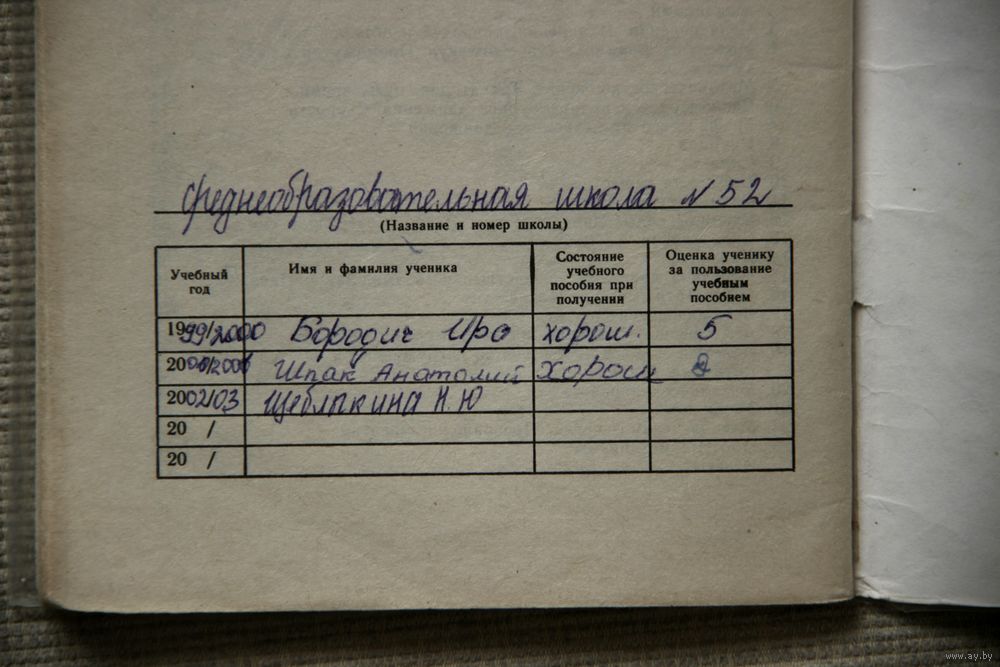 среднеобразовательная школа № 52
(Название и номер школы)
Учебный год | Имя и фамилия ученика | Состояние учебного пособия при получении | Оценка ученику за пользование учебным пособием
1999/2000 | Бородич Ира | хорош. | 5
2000/2001 | Шпак Анатолий | Хорош
2002/03 | Щеблыкина Н.Ю
20 /
20 /
www.ay.by